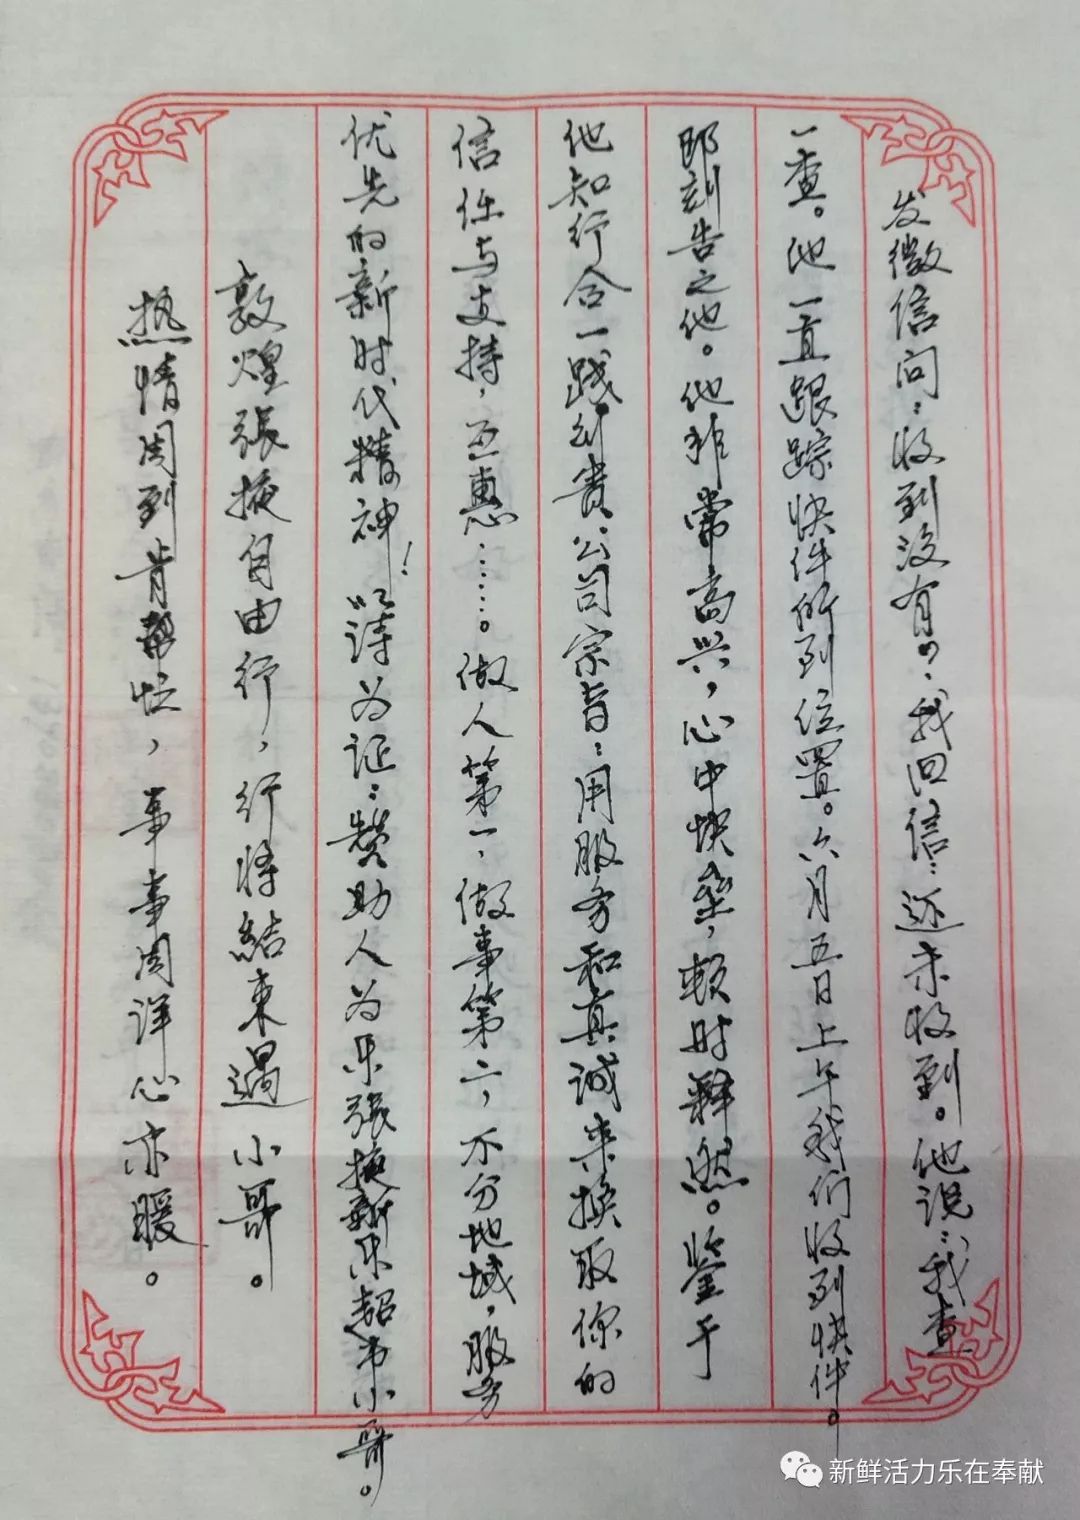 发微信问：收到没有？，我回信：还未收到。他说：我查
一查。他一直跟踪快件所到位置。六月五日上午我们收到快件。
即刻告之他。他非常高兴，心中快乐，顿时释然。鉴于
他知行合一践行贵公司宗旨：用服务和真诚来换取你的
信任与支持，互惠……。做人第一，做事第二，不分地域，服务
优先的新时代精神！以诗为证：赞助人为乐張掖新乐超市小哥。
敦煌張掖自由行，行将結束遇小哥。
热情周到肯帮忙，事事周详心亦暖。
新鲜活力乐在奉献